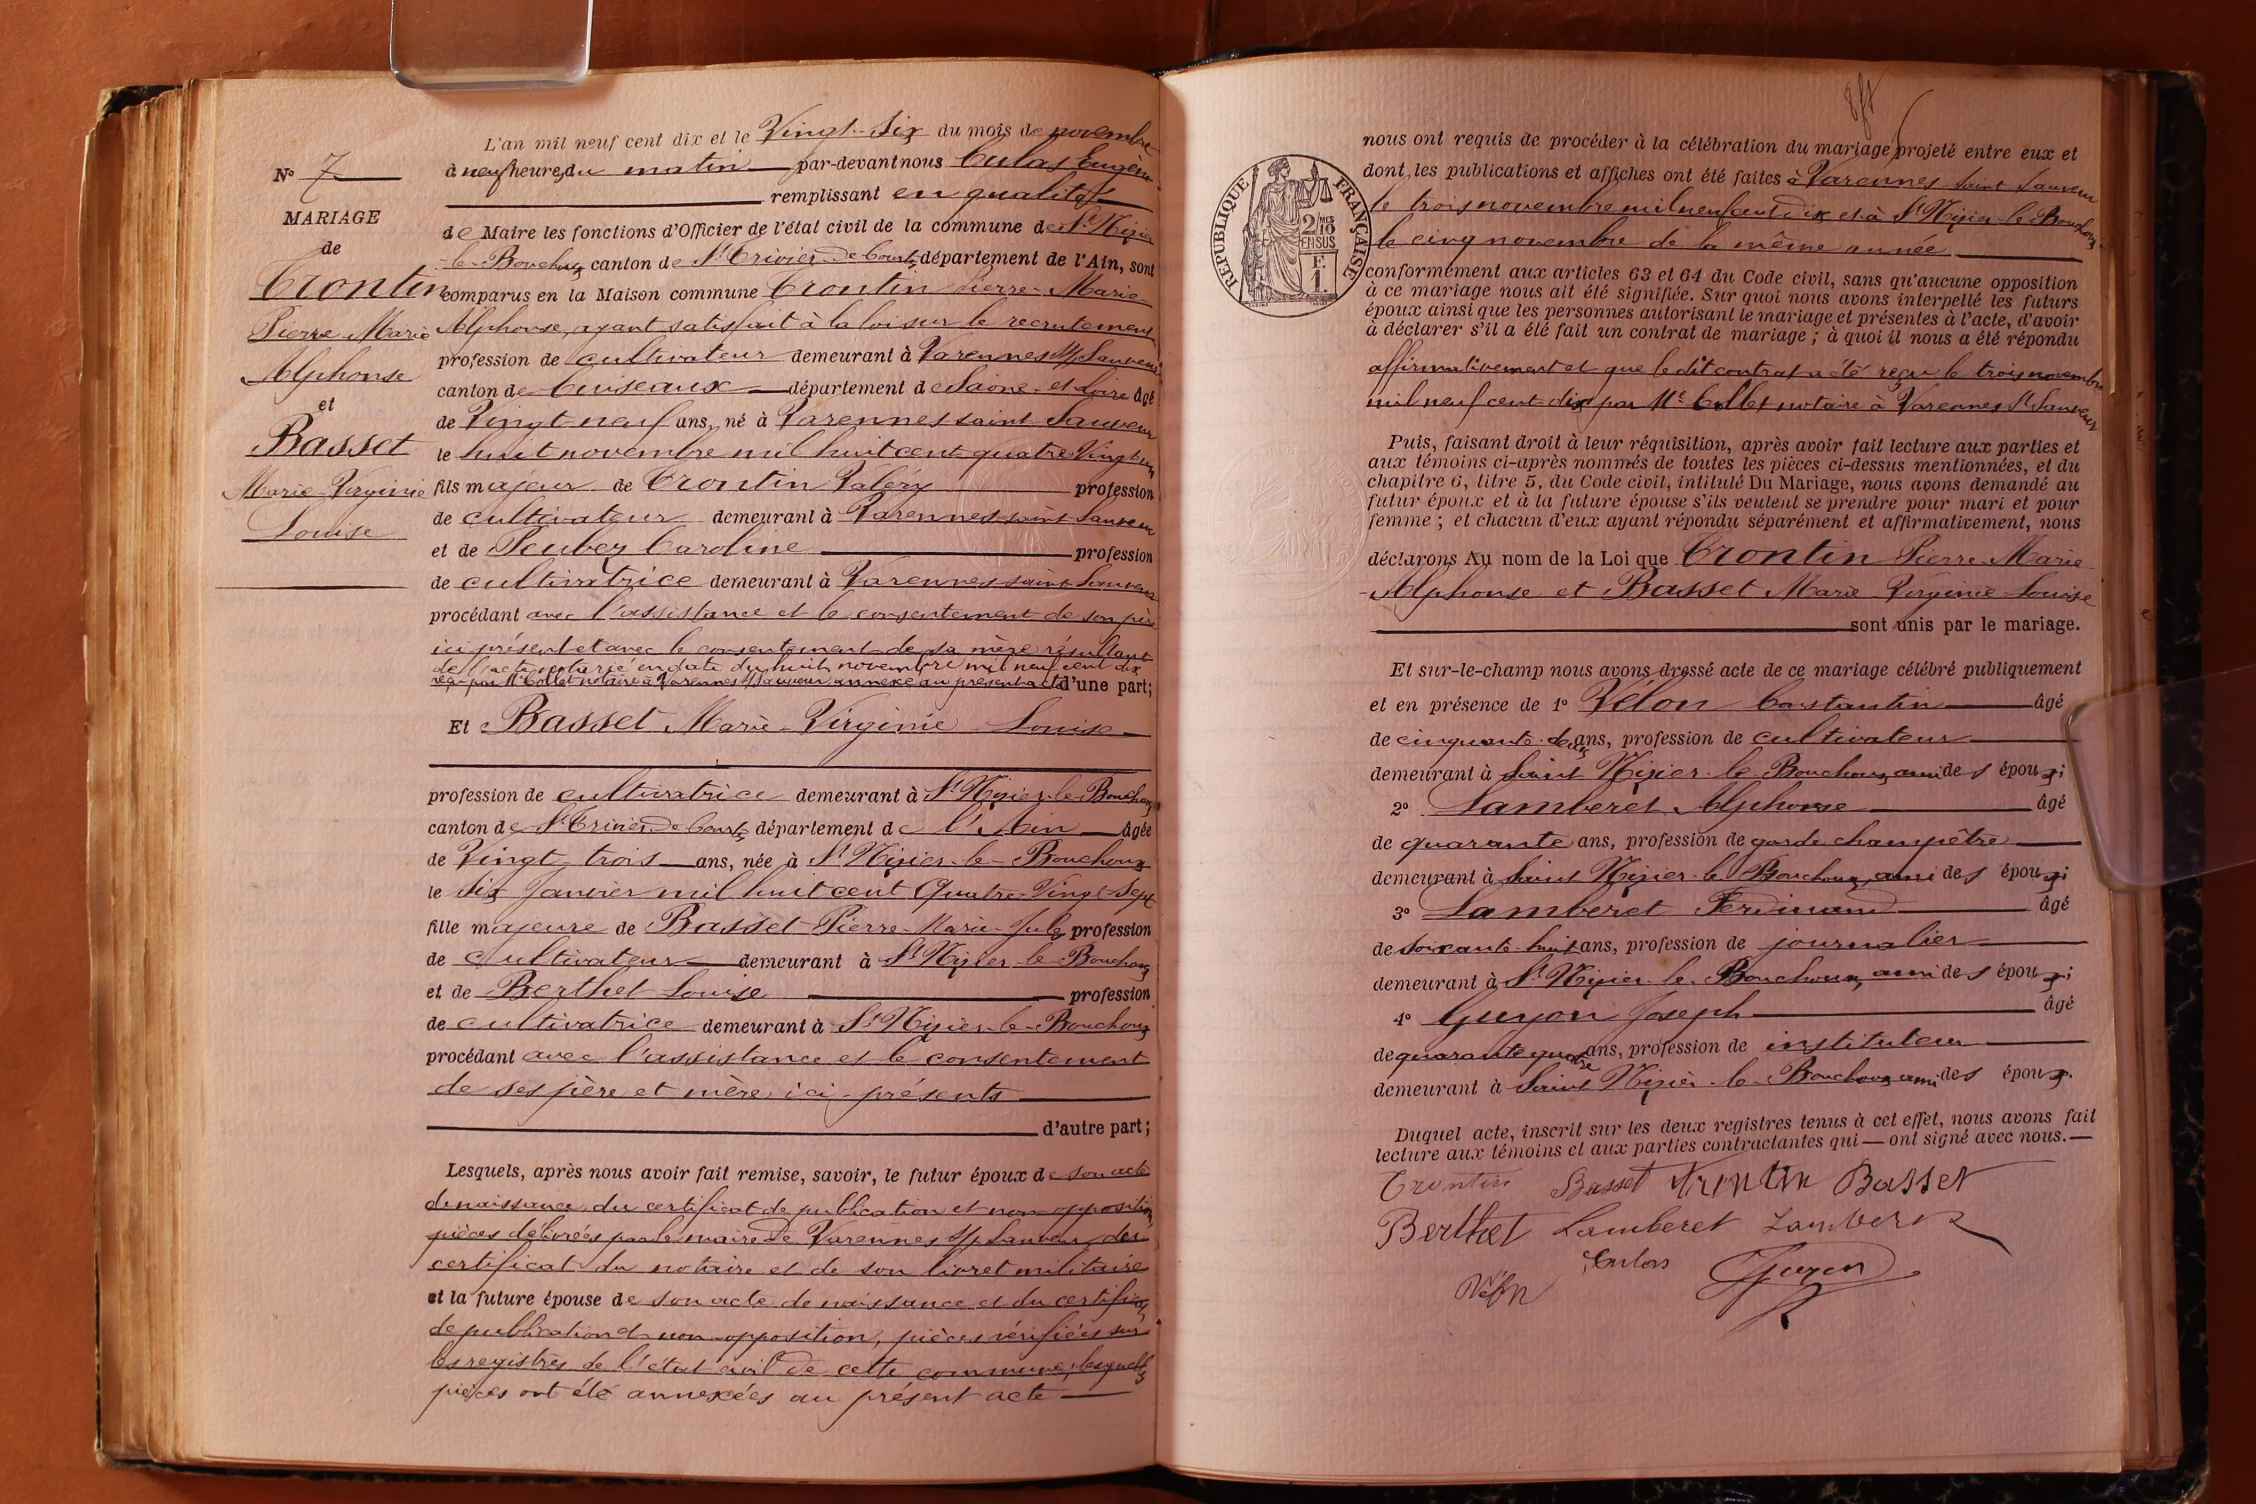 L'an mil neuf cent dix et le Vingt-Six du mois de novembre
à neuf heures du matin par-devant nous Culas Eugène
remplissant en qualité
de Maire les fonctions d'Officier de l'état civil de la commune de St Nizier
le-Bouchoux canton de St Trivier-de-Courtes département de l'Ain, sont
comparus en la Maison commune Trontin Pierre-Marie-
Alphonse, ayant satisfait à la loi sur le recrutement
profession de cultivateur demeurant à Varennes St Sauveur
canton de Cuiseaux département de Saône-et-Loire âgé
de Vingt-neuf ans, né à Varennes saint Sauveur
le huit novembre mil huit cent quatre Vingt un
fils majeur de Trontin Valéry profession
de cultivateur demeurant à Varennes saint Sauveur
et de Caroline profession
de cultivatrice demeurant à Varennes saint Sauveur
procédant avec l'assistance et le consentement de son père
ici présent et avec le consentement de sa mère résultant
de l'acte notarié en date du huit novembre mil neuf cent dix
reçu par Me Collet notaire à Varennes St Sauveur annexé au présent acte d'une part;
Et Basset Marie-Virginie Louise
profession de cultivatrice demeurant à St Nizier-le-Bouchoux
canton de St Trivier-de-Courtes département de l'Ain âgée
de Vingt trois ans, née à St Nizier-le-Bouchoux
le six Janvier mil huit cent Quatre-Vingt-Sept
fille majeure de Basset Pierre-Marie-Jules profession
de cultivateur demeurant à St Nizier-le-Bouchoux
et de Berthet Louise profession
de cultivatrice demeurant à St Nizier-le-Bouchoux
procédant avec l'assistance et le consentement
de ses père et mère ici présents
d'autre part;
Lesquels, après nous avoir fait remise, savoir, le futur époux de son acte
de naissance du certificat de publication et non-opposition
pièces délivrées par le maire de Varennes St Sauveur, du
certificat du notaire et de son livret militaire
et la future épouse de son acte de naissance et du certificat
de publication et non-opposition, pièces vérifiées sur
les registres de l'état civil de cette commune; lesquelles
pièces ont été annexées au présent acte
No 7
MARIAGE
de
Trontin
Pierre Marie
Alphonse
et
Basset
Marie-Virginie
Louise
nous ont requis de procéder à la célébration du mariage projeté entre eux et
dont les publications et affiches ont été faites à Varennes saint Sauveur
le trois novembre mil neuf cent dix et à St Nizier-le-Bouchoux
le cinq novembre de la même année
conformément aux articles 63 et 64 du Code civil, sans qu'aucune opposition
à ce mariage nous ait été signifiée. Sur quoi nous avons interpellé les futurs
époux ainsi que les personnes autorisant le mariage et présentes à l'acte, d'avoir
à déclarer s'il a été fait un contrat de mariage; à quoi il nous a été répondu
affirmativement et que le dit contrat a été reçu le trois novembre
mil neuf cent dix par Me Collet notaire à Varennes St Sauveur
Puis, faisant droit à leur réquisition, après avoir fait lecture aux parties et
aux témoins ci-après nommés de toutes les pièces ci-dessus mentionnées, et du
chapitre 6, titre 5, du Code civil, intitulé Du Mariage, nous avons demandé au
futur époux et à la future épouse s'ils veulent se prendre pour mari et pour
femme; et chacun d'eux ayant répondu séparément et affirmativement, nous
déclarons Au nom de la Loi que Trontin Pierre-Marie-
Alphonse et Basset Marie-Virginie-Louise
sont unis par le mariage.
Et sur-le-champ nous avons dressé acte de ce mariage célébré publiquement
et en présence de 1° Vélon Constantin âgé
de cinquante-deux ans, profession de cultivateur
demeurant à Saint Nizier-le-Bouchoux, ami des époux;
2° Lamberet Alphonse âgé
de quarante ans, profession de garde champêtre
demeurant à Saint Nizier-le-Bouchoux, ami des époux;
3° Lamberet Ferdinand âgé
de soixante-huit ans, profession de journalier
demeurant à St Nizier-le-Bouchoux, ami des époux;
4° Guyon Joseph âgé
de quarante quatre ans, profession de instituteur
demeurant à Saint Nizier-le-Bouchoux ami des époux.
Duquel acte, inscrit sur les deux registres tenus à cet effet, nous avons fait
lecture aux témoins et aux parties contractantes qui — ont signé avec nous. —
Trontin Basset Trontin Basset
Berthet Lamberet Lamberet
Vélon Culas Guyon
RÉPUBLIQUE FRANÇAISE
2/10 EN SUS
F.
1.